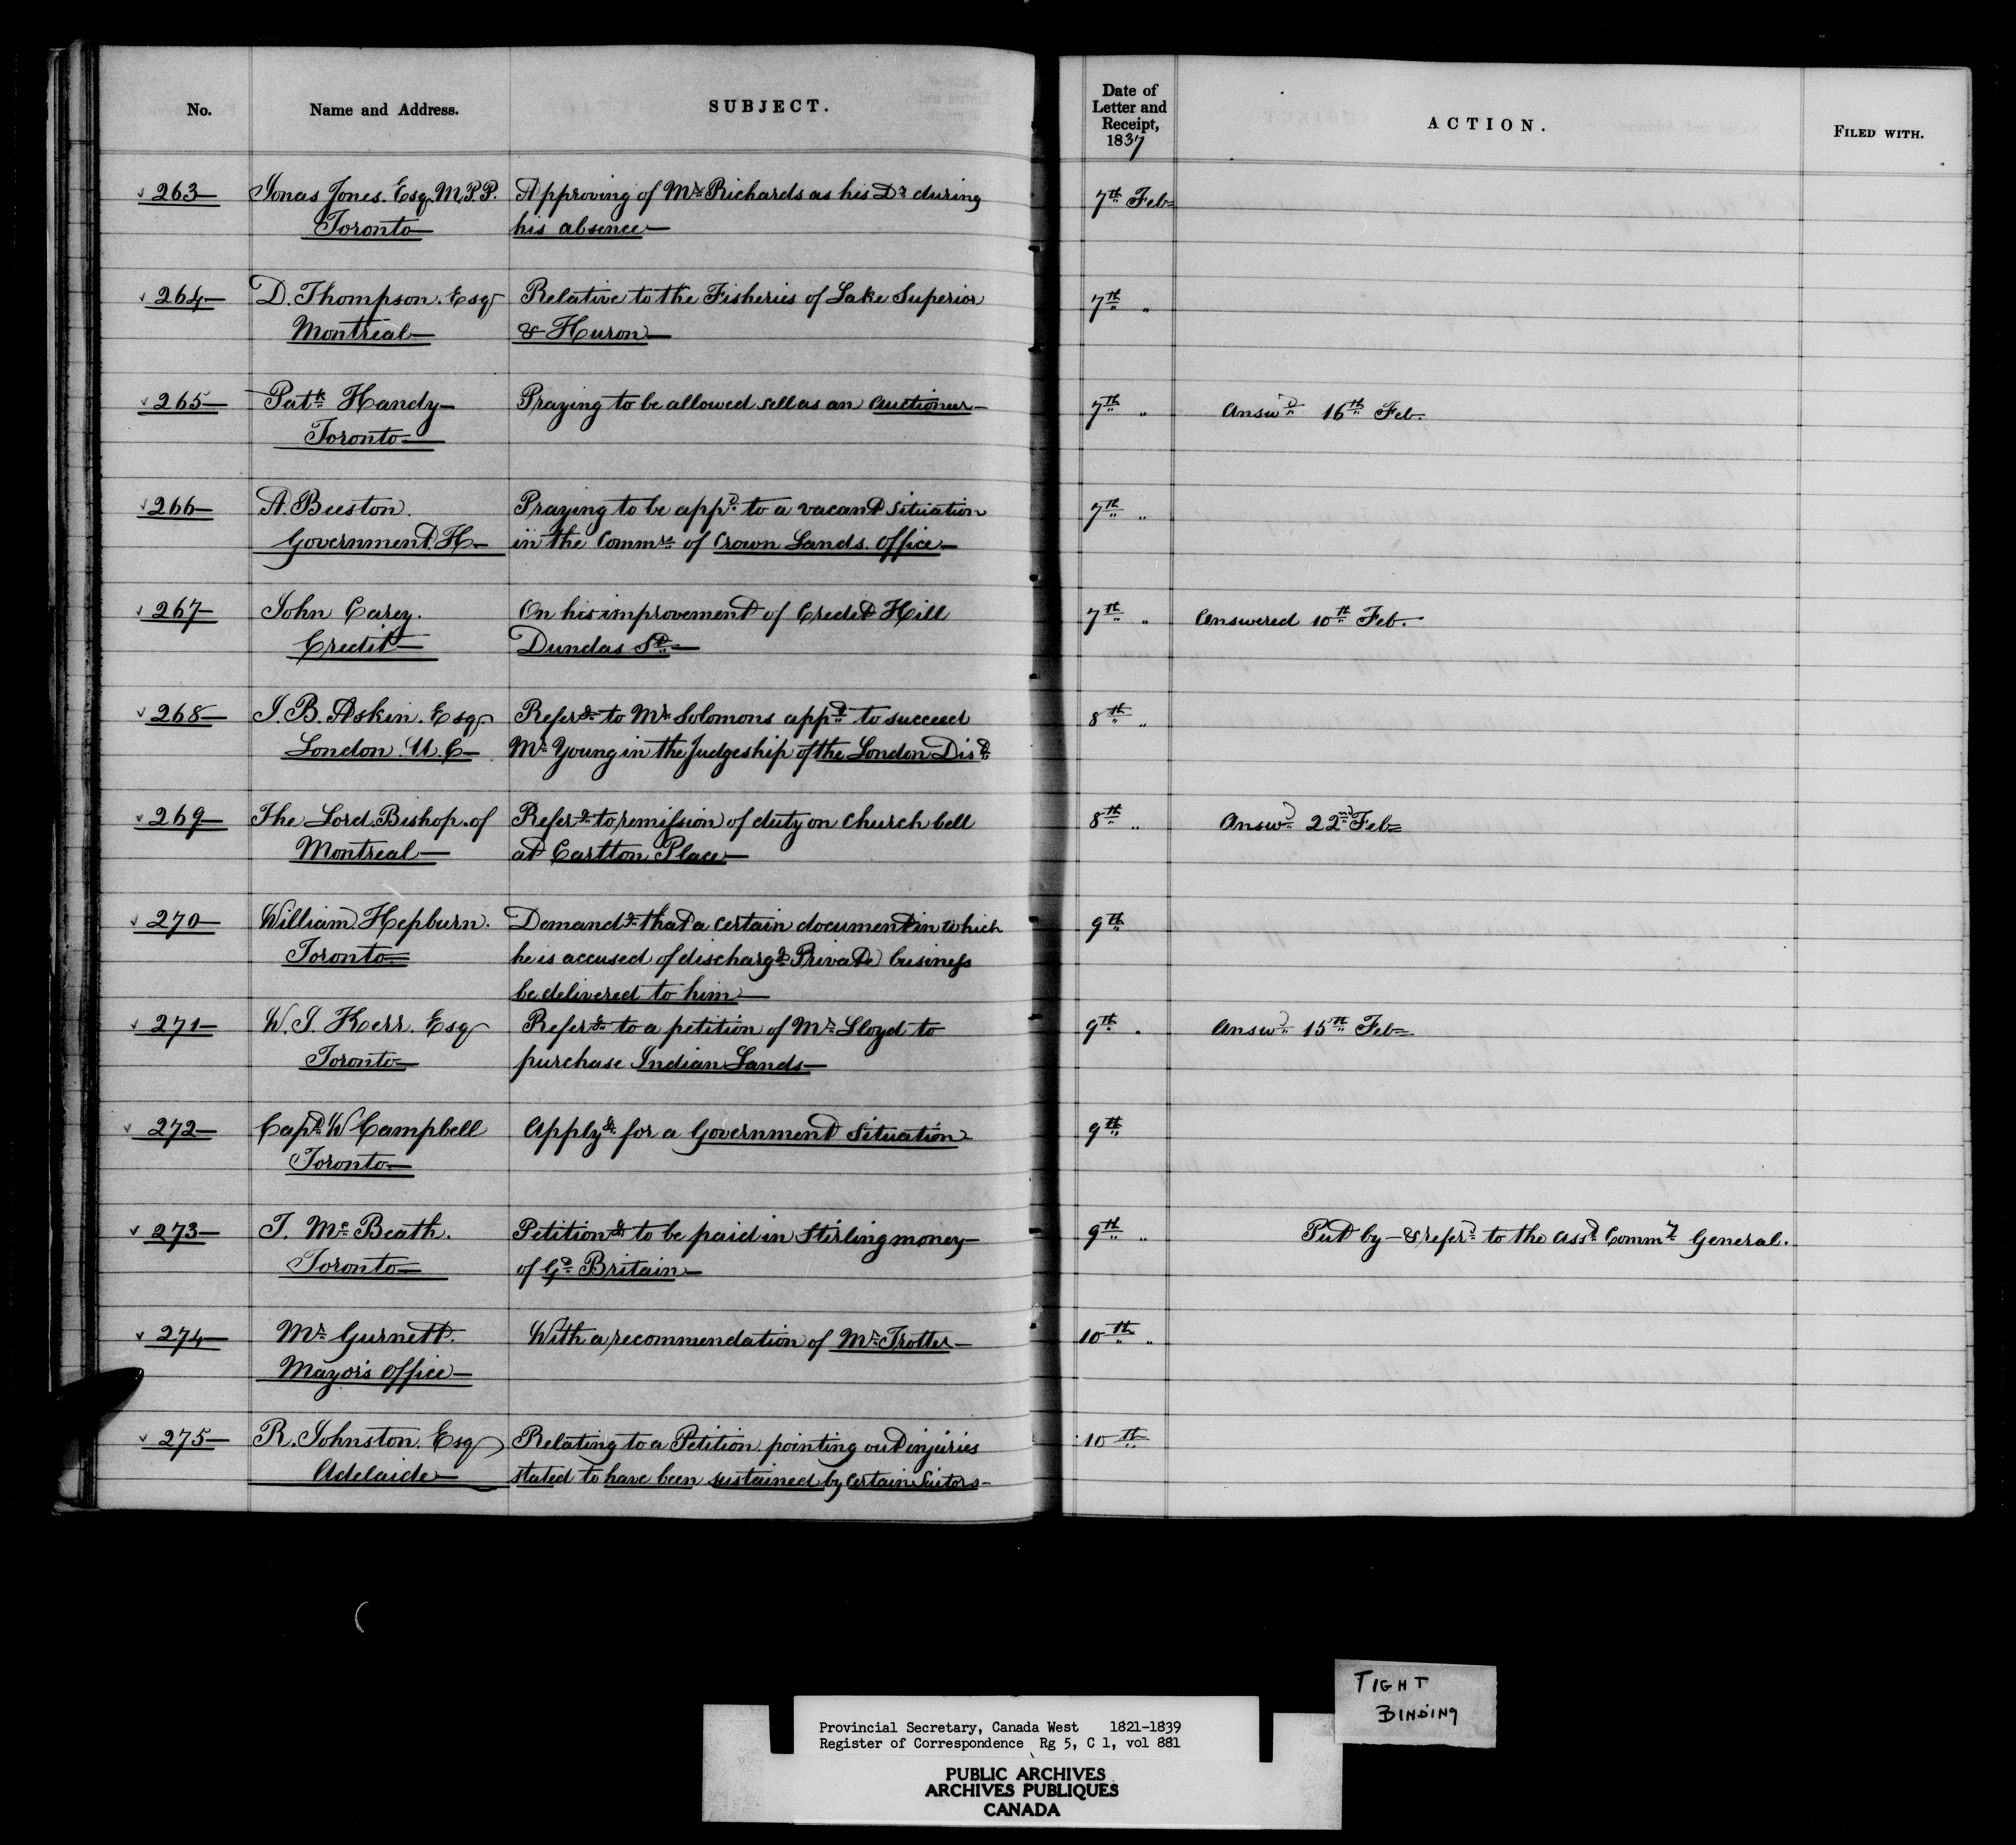 No. Name and Address. SUBJECT. Date of Letter and Receipt, 1837 ACTION. FILED WITH.
263 Jonas Jones. Esqr. M.P.P. Approving of Mr. Richards as his Dr. during 7th Feb
Toronto his absence
264 D. Thompson. Esqr Relative to the Fisheries of Lake Superior 7th "
Montreal & Huron
265 Patk Handy Praying to be allowed sell as an Auctioneer 7th " Answd 16th Feb.
Toronto
266 A. Beeston. Praying to be appd to a vacant situation 7th "
Government. H in the Commrs of Crown Lands. Office
267 John Carey. On his improvement of Credit Hill 7th " Answered 10th Feb.
Credit Dundas St
268 J. B. Askin. Esqr Referg to Mr Solomons appt to succeed 8th "
London. U. C Mr Young in the Judgeship of the London Dist
269 The Lord Bishop. of Referg to remission of duty on Church bell 8th " Answd 22nd Feb
Montreal at Carlton Place
270 William Hepburn. Demandg that a certain document in which 9th
Toronto he is accused of dischargg Private business
be delivered to him
271 W. J. Kerr. Esqr Referg to a petition of Mr Lloyd to 9th " Answd 15th Feb
Toronto purchase Indian Lands
272 Capt W Campbell Applyg for a Government Situation 9th
Toronto
273 T. Mc Beath. Petitiong to be paid in Stirling money 9th " Put by & referd to the Asst Commy General.
Toronto of Gt Britain
274 Mr Gurnett. With a recommendation of Mr Trotter 10th "
Mayors Office
275 R. Johnston. Esqr Relating to a Petition pointing out injuries 10th
Adelaide stated to have been sustained by Certain Suitors
TIGHT
BINDING
Provincial Secretary, Canada West 1821-1839
Register of Correspondence Rg 5, C 1, vol 881
PUBLIC ARCHIVES
ARCHIVES PUBLIQUES
CANADA